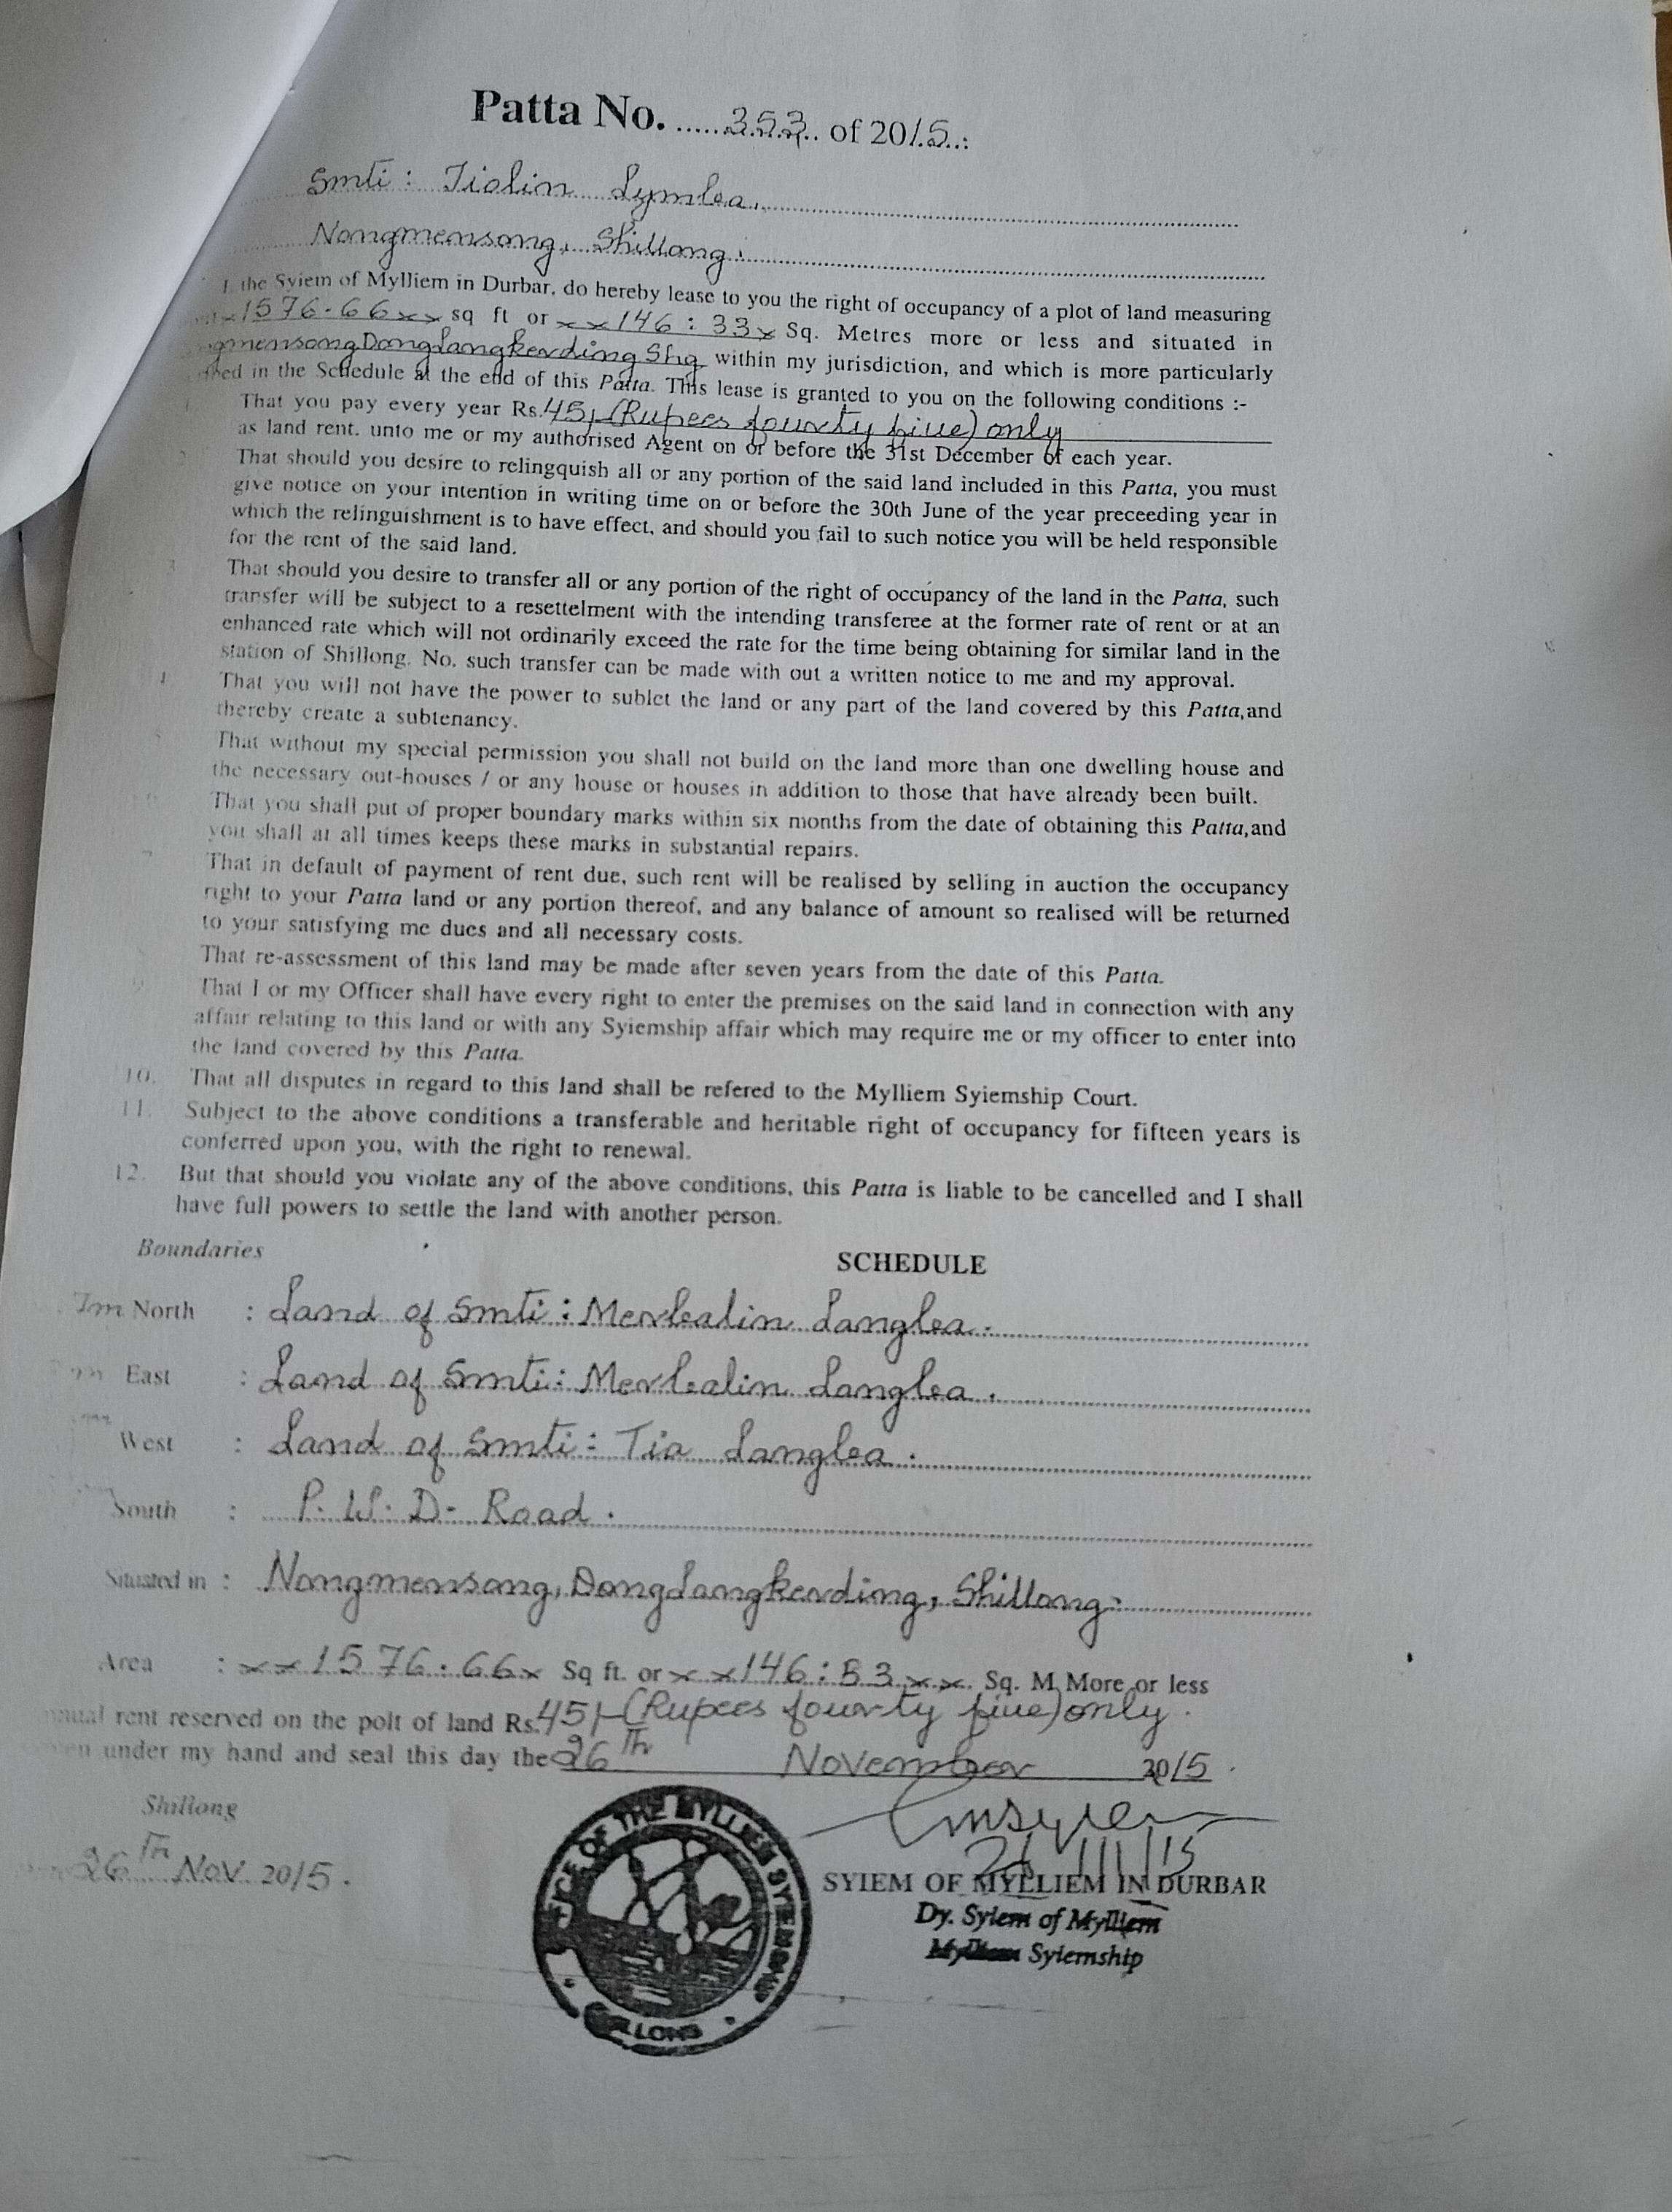 Patta No. ......353.. of 2015..:
Smti : Tiolin Lymlea.
Nongmensong, Shillong.
I, the Syiem of Mylliem in Durbar, do hereby lease to you the right of occupancy of a plot of land measuring
x1576.66xx sq ft or xx146:33x Sq. Metres more or less and situated in
gmensong Donglangkerding Shg within my jurisdiction, and which is more particularly
in the Schedule at the end of this Patta. This lease is granted to you on the following conditions :-
That you pay every year Rs.45/-(Rupees fourty five) only
as land rent. unto me or my authorised Agent on or before the 31st December of each year.
That should you desire to relingquish all or any portion of the said land included in this Patta, you must
give notice on your intention in writing time on or before the 30th June of the year preceeding year in
which the relinguishment is to have effect, and should you fail to such notice you will be held responsible
for the rent of the said land.
3 That should you desire to transfer all or any portion of the right of occupancy of the land in the Patta, such
transfer will be subject to a resettelment with the intending transferee at the former rate of rent or at an
enhanced rate which will not ordinarily exceed the rate for the time being obtaining for similar land in the
station of Shillong. No. such transfer can be made with out a written notice to me and my approval.
That you will not have the power to sublet the land or any part of the land covered by this Patta,and
thereby create a subtenancy.
That without my special permission you shall not build on the land more than one dwelling house and
the necessary out-houses / or any house or houses in addition to those that have already been built.
That you shall put of proper boundary marks within six months from the date of obtaining this Patta,and
you shall at all times keeps these marks in substantial repairs.
7 That in default of payment of rent due, such rent will be realised by selling in auction the occupancy
right to your Patta land or any portion thereof, and any balance of amount so realised will be returned
to your satisfying me dues and all necessary costs.
That re-assessment of this land may be made after seven years from the date of this Patta.
9 That I or my Officer shall have every right to enter the premises on the said land in connection with any
affair relating to this land or with any Syiemship affair which may require me or my officer to enter into
the land covered by this Patta.
10. That all disputes in regard to this land shall be refered to the Mylliem Syiemship Court.
11. Subject to the above conditions a transferable and heritable right of occupancy for fifteen years is
conferred upon you, with the right to renewal.
12. But that should you violate any of the above conditions, this Patta is liable to be cancelled and I shall
have full powers to settle the land with another person.
Boundaries
SCHEDULE
North : Land of Smti : Merbalin Langlea.
East : Land of Smti : Merbalin Langlea.
West : Land of Smti : Tia Langlea.
South : P. W. D- Road.
Situated in : Nongmensong, Donglangkerding, Shillong.
Area : xx1576.66x Sq ft. or xx146:53xx Sq. M More or less
nual rent reserved on the polt of land Rs.45/-(Rupees fourty five) only.
en under my hand and seal this day the 26Th November 2015.
Shillong
26Th Nov 2015.
OFFICE OF THE MYLLIEM SYIEMSHIP
SHILLONG
26/11/15
SYIEM OF MYLLIEM IN DURBAR
Dy. Syiem of Mylliem
Mylliem Syiemship